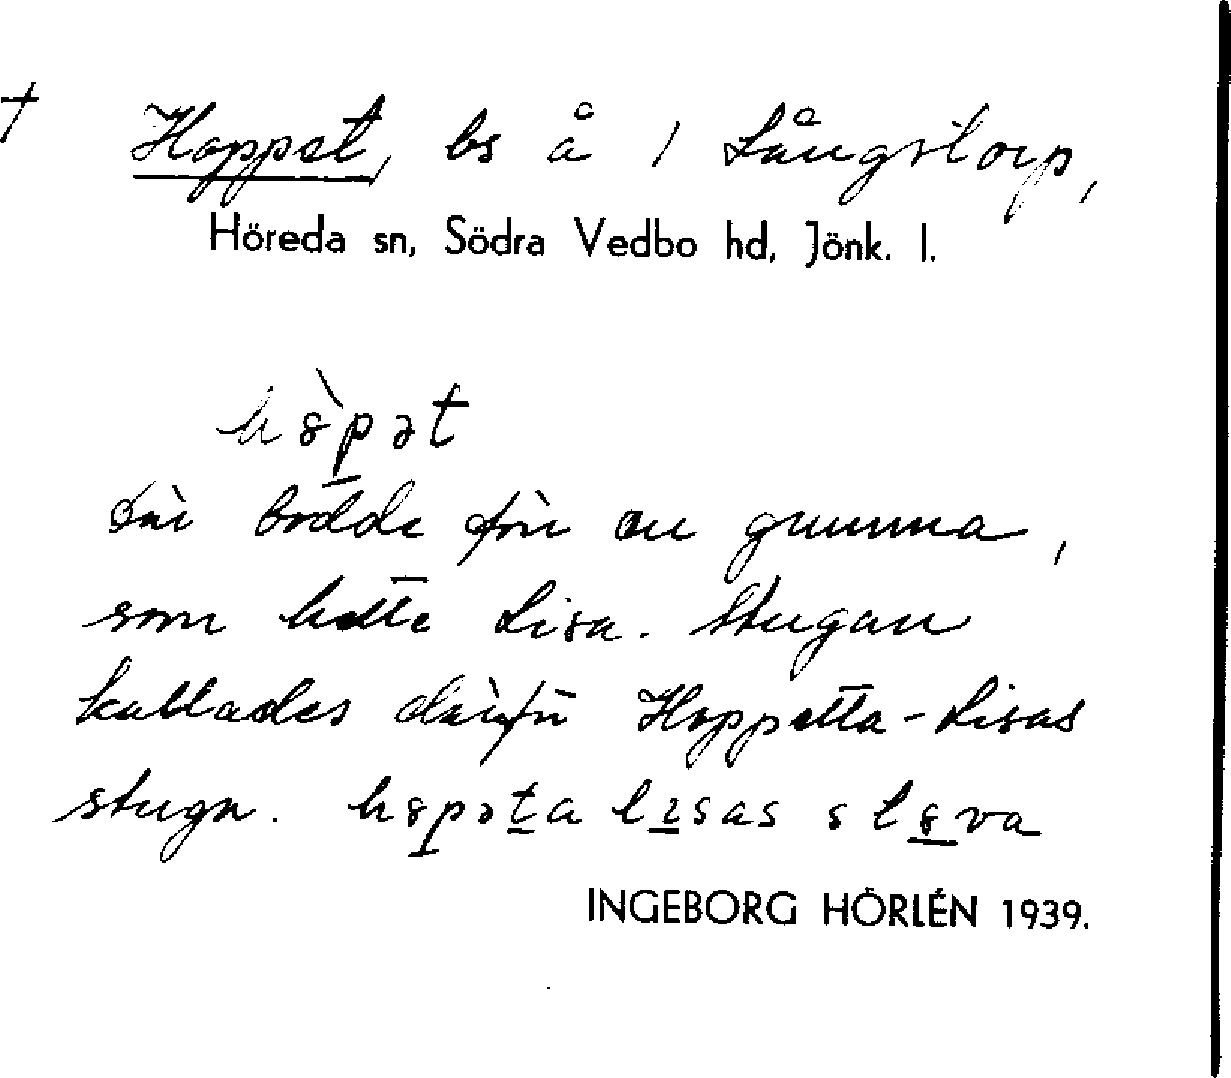 † Hoppet, bs å 1 Långstorp,
Höreda sn, Södra Vedbo hd, Jönk. l.
h8̀pət
Där bodde för en gumma,
som hette Lisa. Stugan
kallades därför Hoppetta-Lisas
stuga. h8pəta lisas st8va
INGEBORG HÖRLÉN 1939.